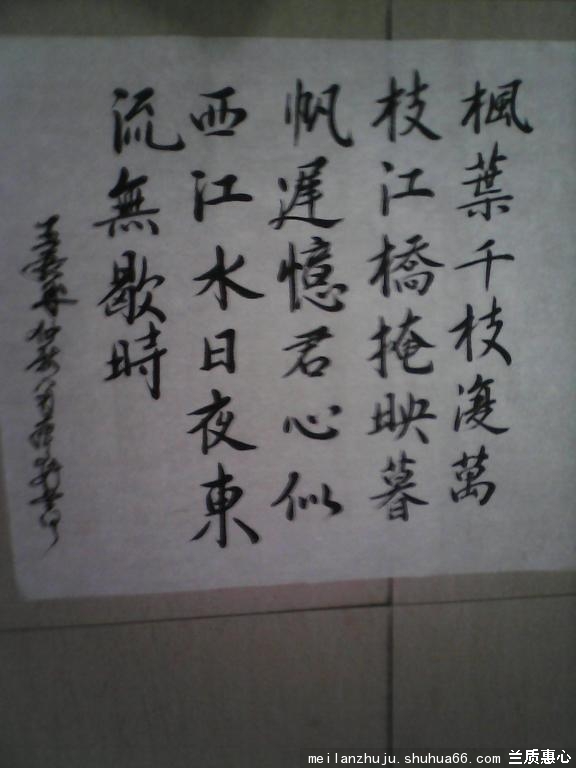 楓葉千枝復萬
枝江橋掩映暮
帆遲憶君心似
西江水日夜東
流無歇時
meilanzhuju.shuhua66.com 兰质惠心